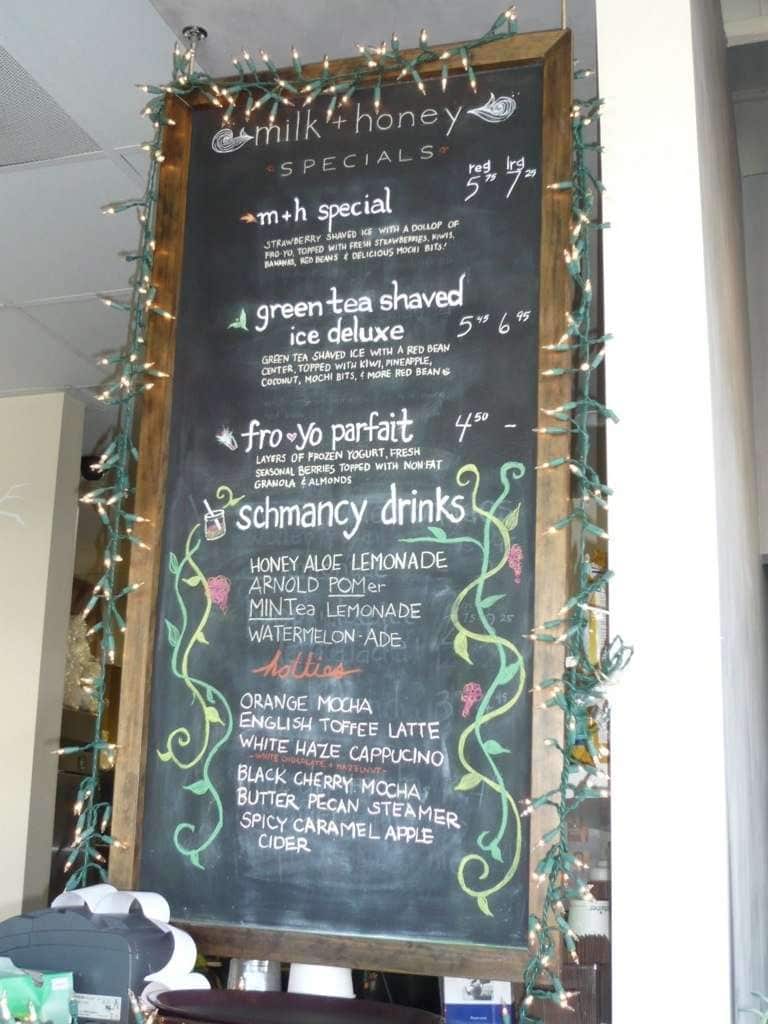 milk + honey
SPECIALS
reg lrg
m+h special 5.75 7.25
STRAWBERRY SHAVED ICE WITH A DOLLOP OF
FRO-YO, TOPPED WITH FRESH STRAWBERRIES, KIWIS,
BANANAS, RED BEANS & DELICIOUS MOCHI BITS!
green tea shaved
ice deluxe 5.45 6.95
GREEN TEA SHAVED ICE WITH A RED BEAN
CENTER, TOPPED WITH KIWI, PINEAPPLE,
COCONUT, MOCHI BITS, & MORE RED BEANS
fro♥yo parfait 4.50 -
LAYERS OF FROZEN YOGURT, FRESH
SEASONAL BERRIES TOPPED WITH NON FAT
GRANOLA & ALMONDS
schmancy drinks
HONEY ALOE LEMONADE
ARNOLD POMer
MINTea LEMONADE
WATERMELON-ADE
hotties
ORANGE MOCHA
ENGLISH TOFFEE LATTE
WHITE HAZE CAPPUCINO
-WHITE CHOCOLATE + HAZELNUT-
BLACK CHERRY MOCHA
BUTTER PECAN STEAMER
SPICY CARAMEL APPLE
CIDER